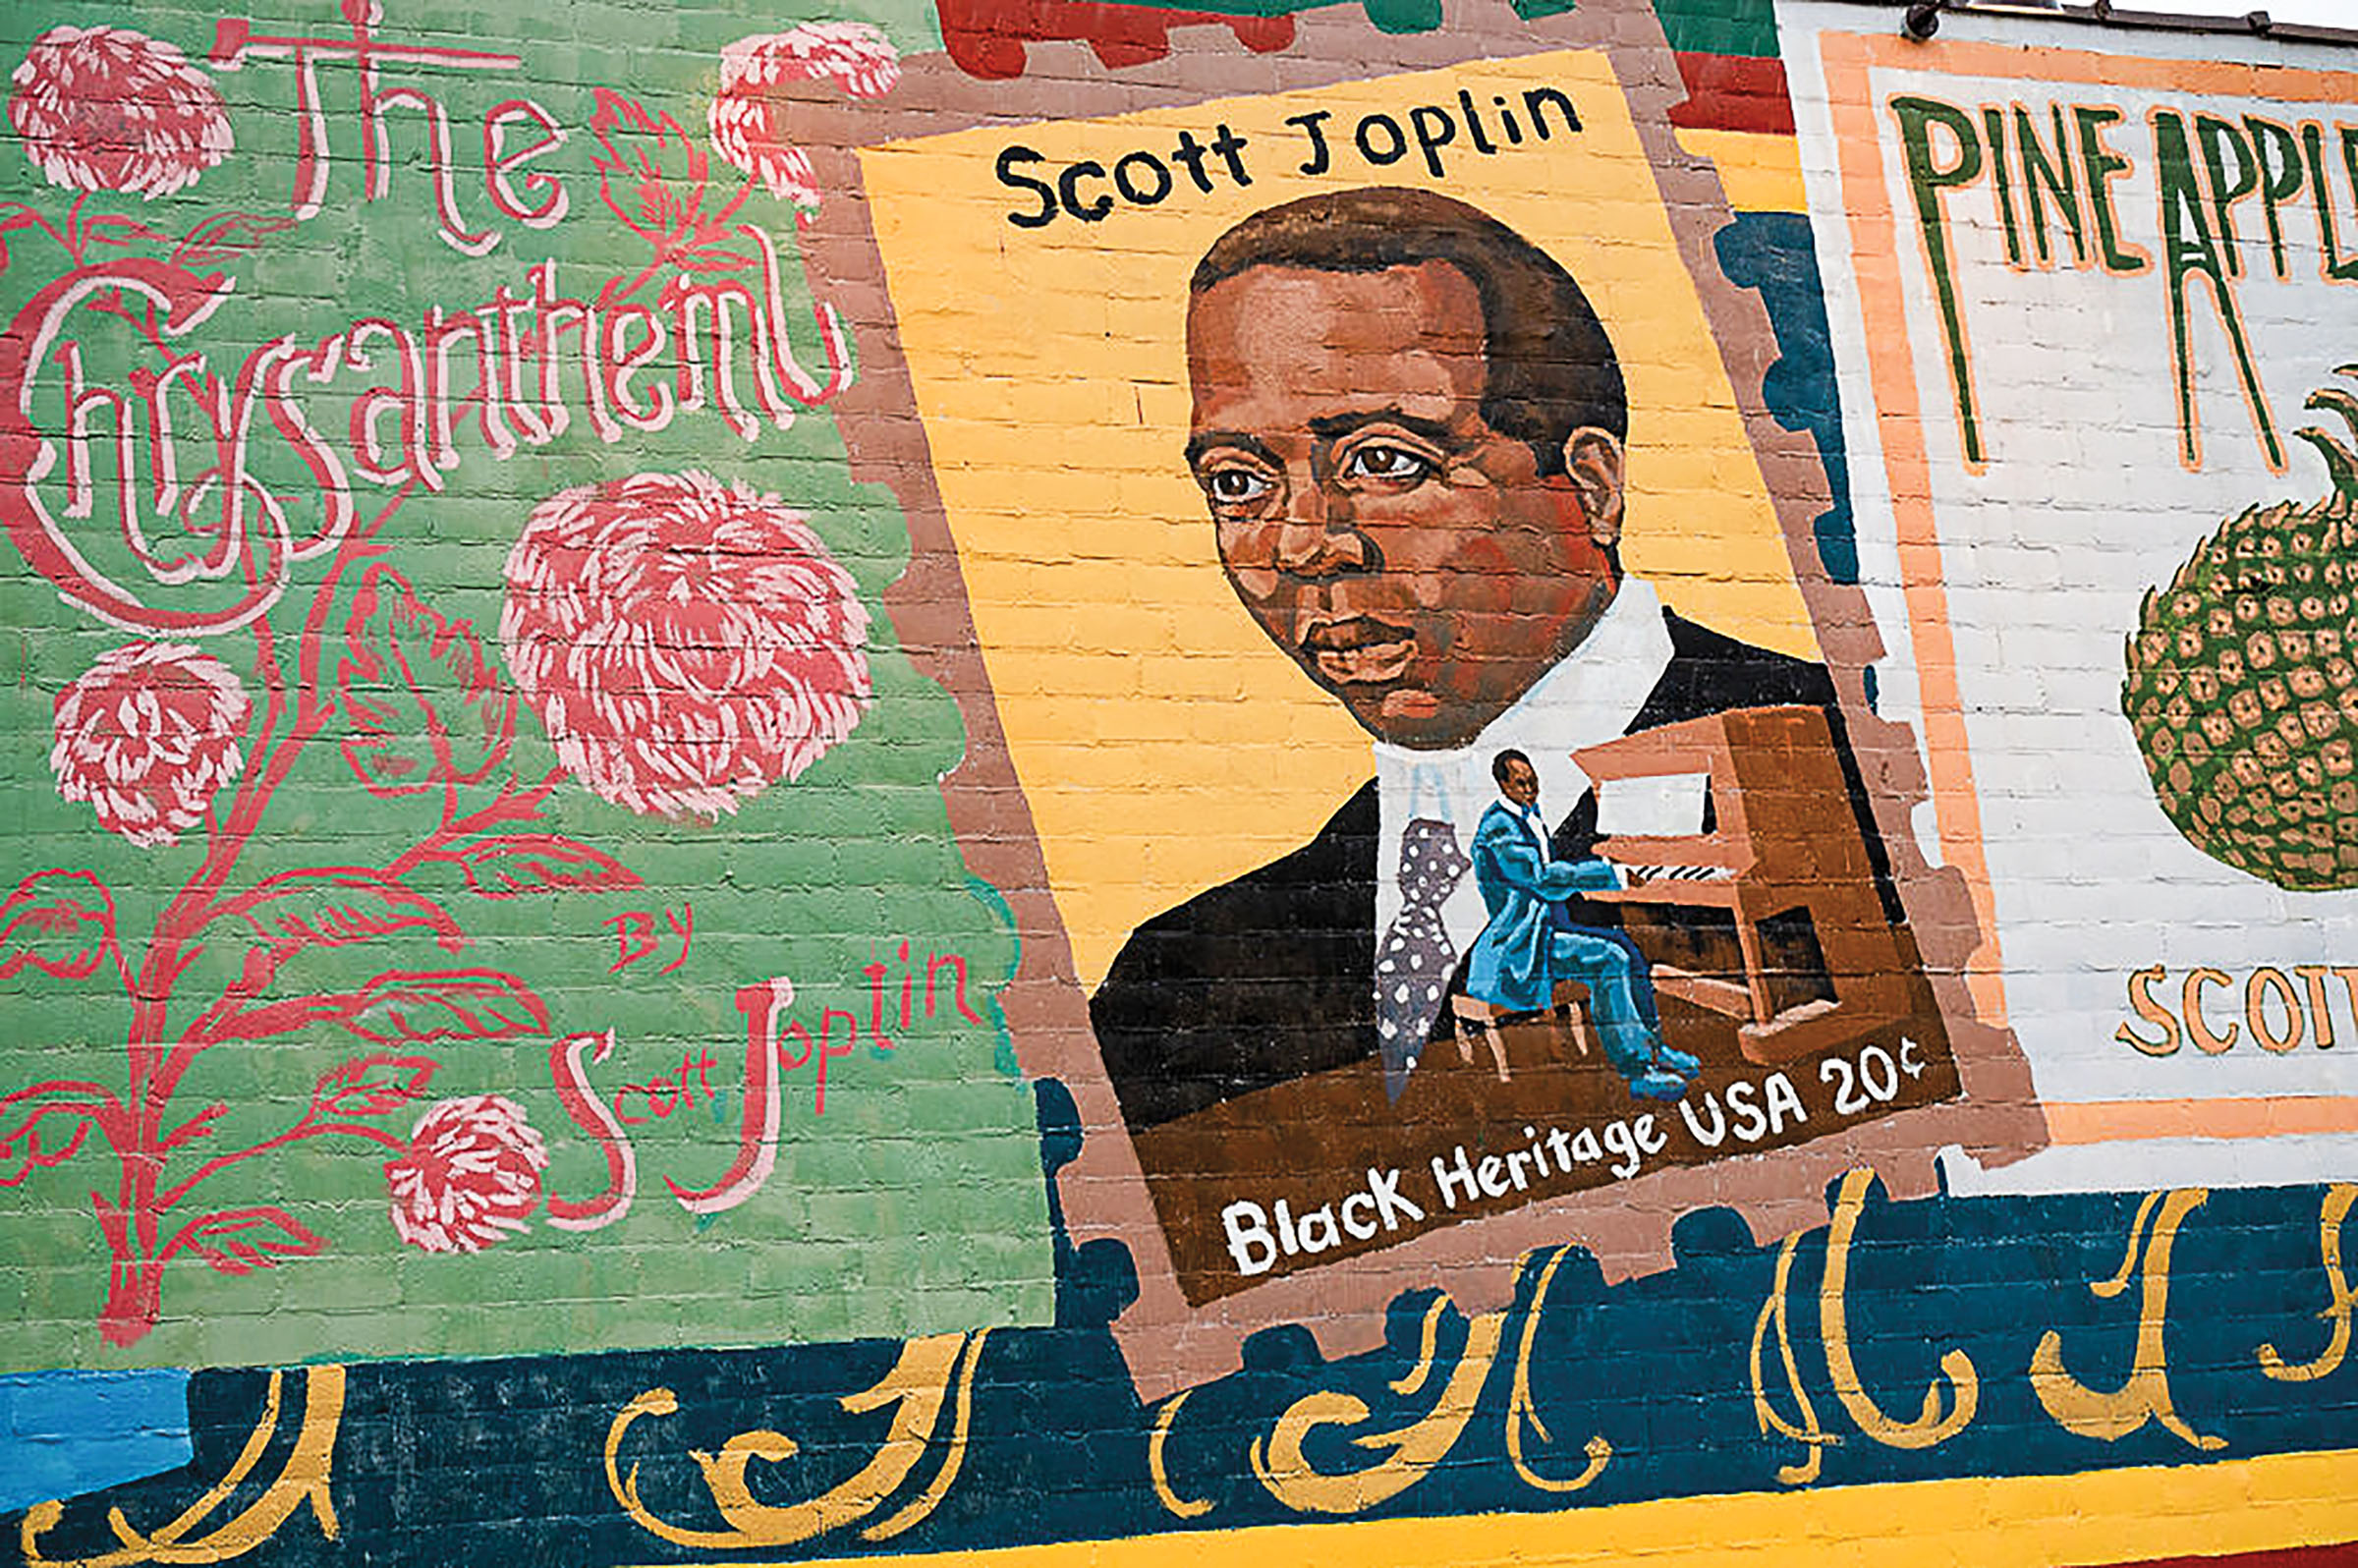 The
ChrysanthemU
By
Scott Joplin
Scott Joplin
Black Heritage USA 20¢
PINEAPPL
SCOTT